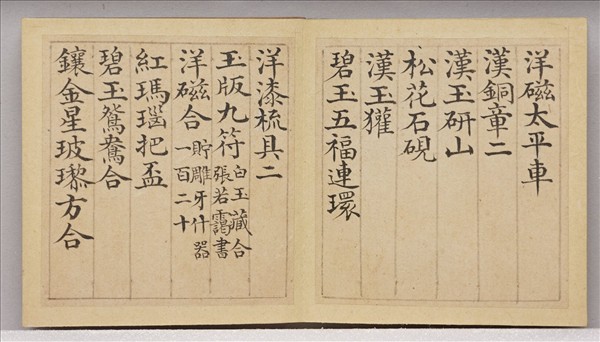 洋磁太平車
漢銅章二
漢玉硏山
松花石硯
漢玉獾
碧玉五福連環
洋漆梳具二
玉版九符 白玉藏合 張若靄書
洋磁合 貯雕牙什器 一百二十
紅瑪瑙把盃
碧玉鴛鴦合
鑲金星玻瓈方合